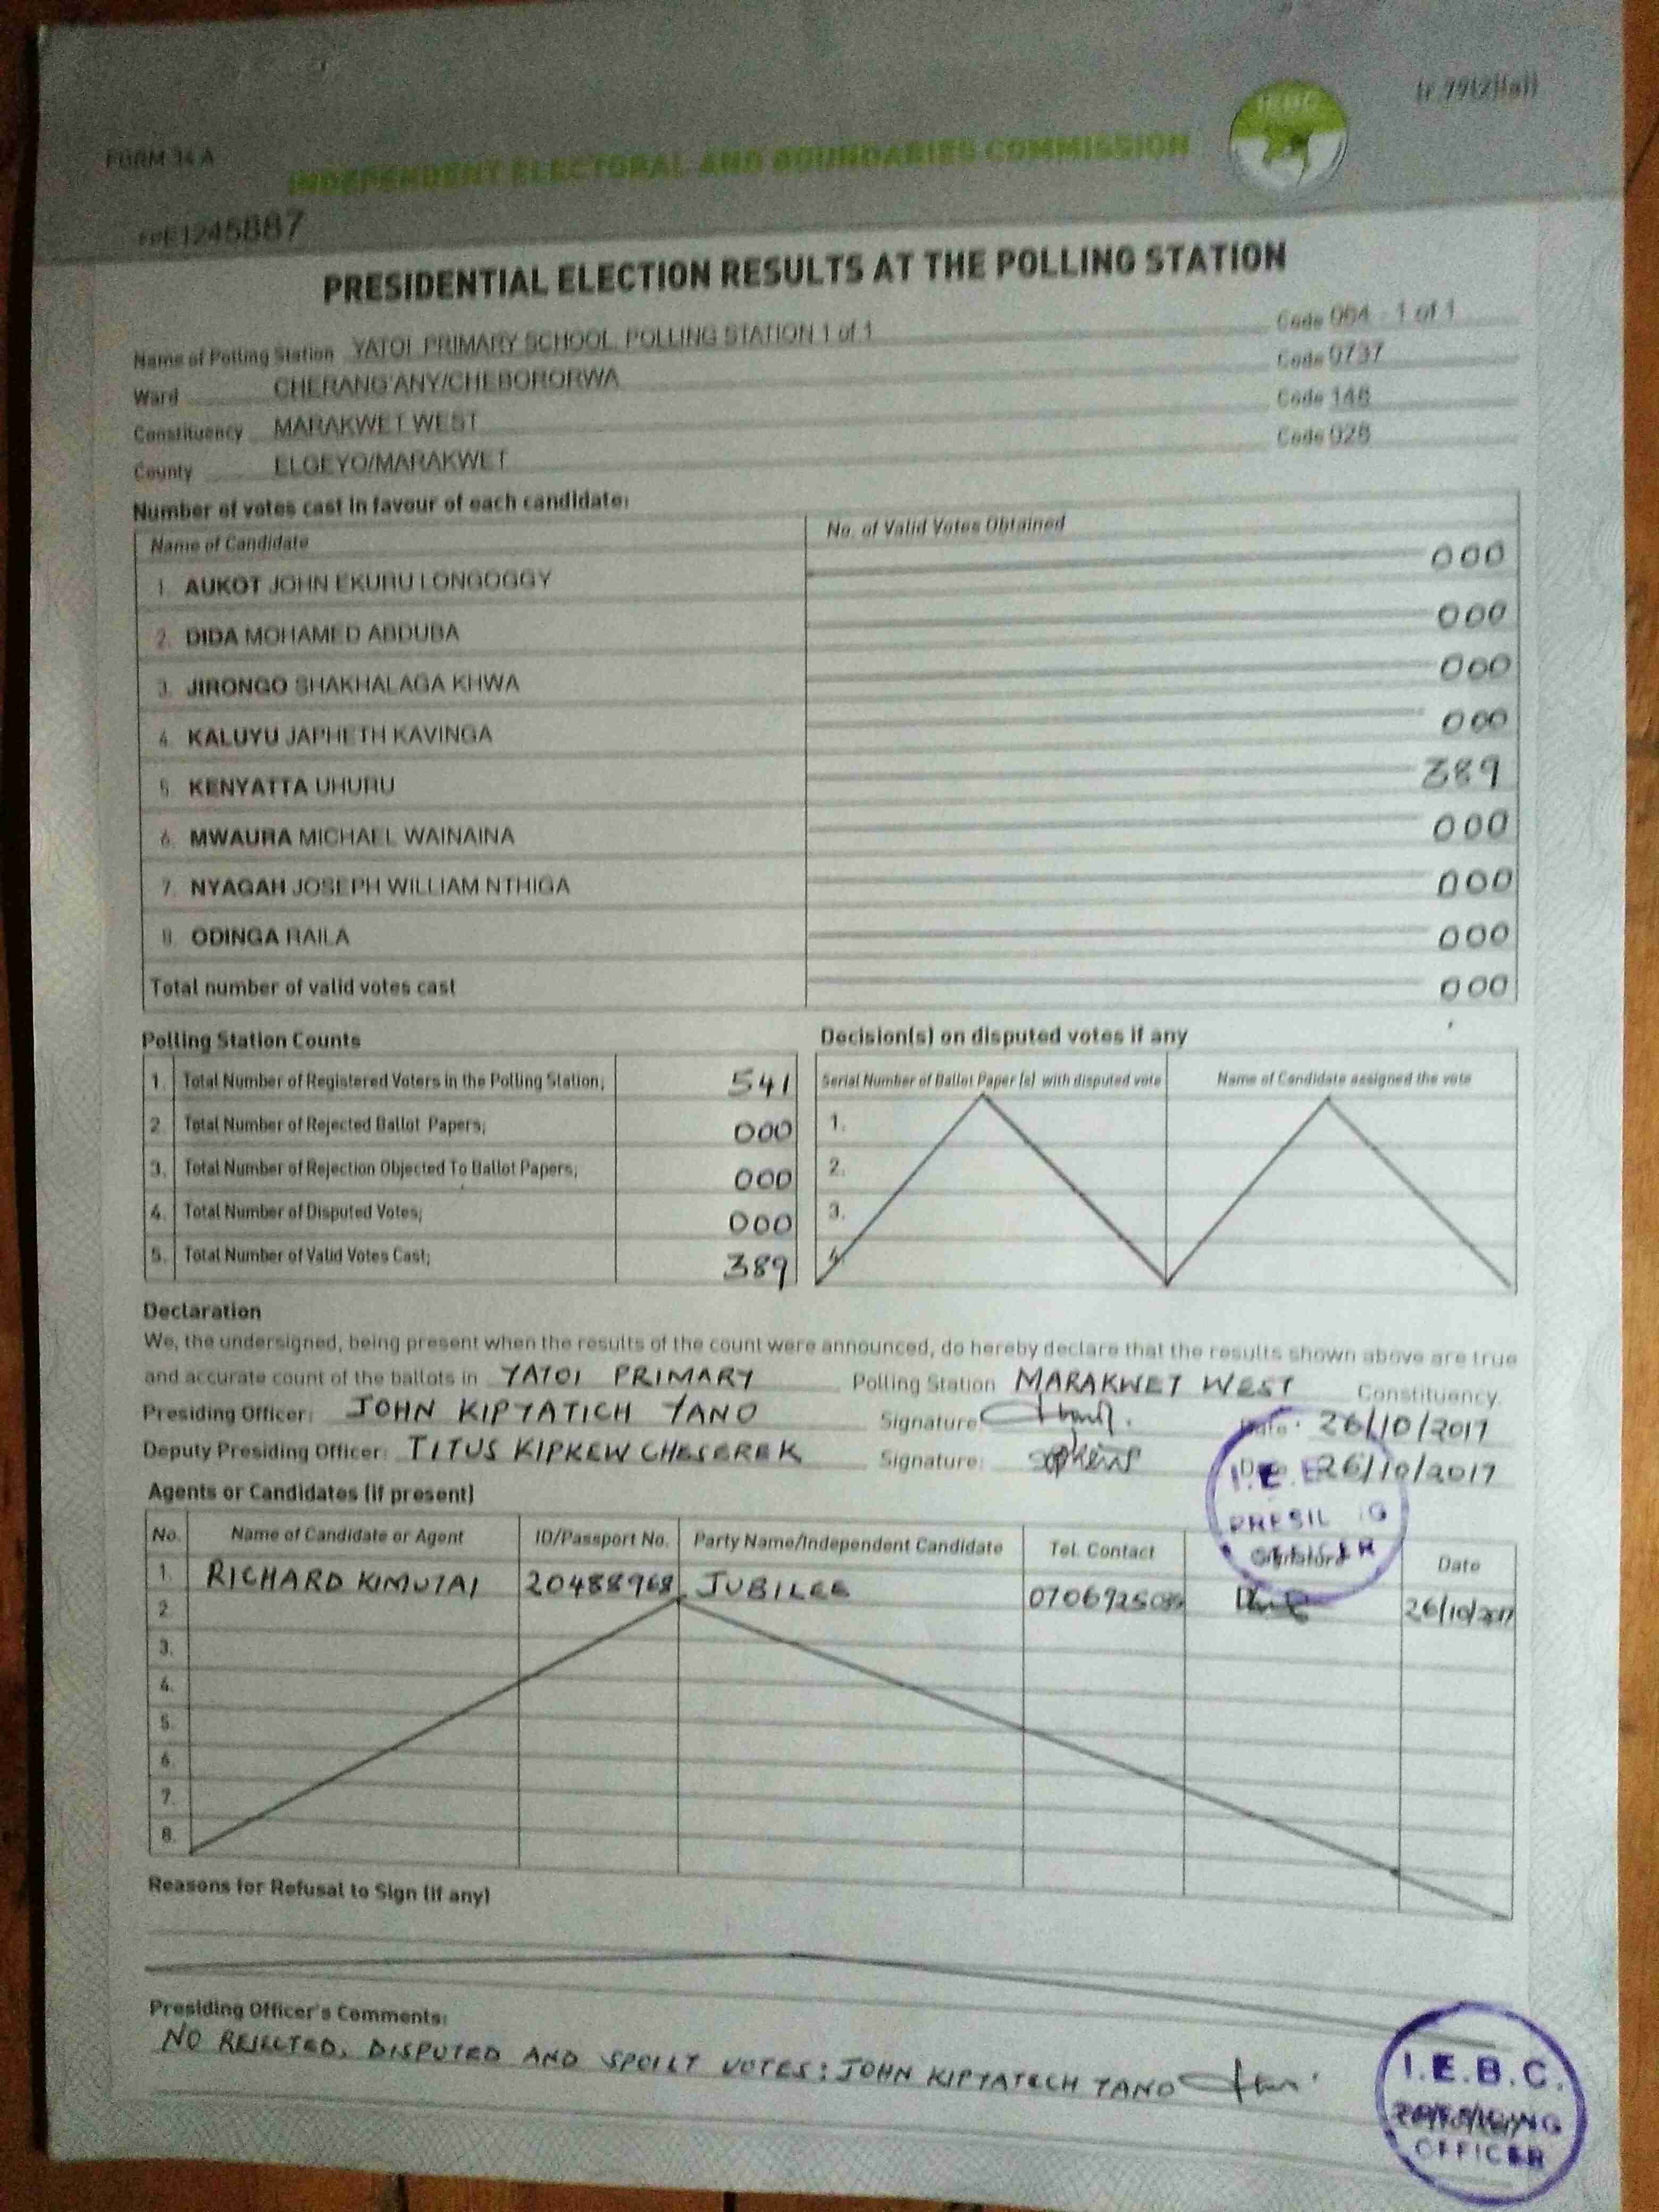 (r.79(2)(a))
IEBC
FORM 34 A
INDEPENDENT ELECTORAL AND BOUNDARIES COMMISSION
1245887
PRESIDENTIAL ELECTION RESULTS AT THE POLLING STATION
Name of Polling Station YATOI PRIMARY SCHOOL POLLING STATION 1 of 1 Code 064 - 1 of 1
Ward CHERANG'ANY/CHEBORORWA Code 0737
Constituency MARAKWET WEST Code 148
County ELGEYO/MARAKWET Code 028
Number of votes cast in favour of each candidate:
Name of Candidate No. of Valid Votes Obtained
1. AUKOT JOHN EKURU LONGOGGY 000
2. DIDA MOHAMED ABDUBA 000
3. JIRONGO SHAKHALAGA KHWA 000
4. KALUYU JAPHETH KAVINGA 000
5. KENYATTA UHURU 389
6. MWAURA MICHAEL WAINAINA 000
7. NYAGAH JOSEPH WILLIAM NTHIGA 000
8. ODINGA RAILA 000
Total number of valid votes cast 000
Polling Station Counts
1. Total Number of Registered Voters in the Polling Station; 541
2. Total Number of Rejected Ballot Papers; 000
3. Total Number of Rejection Objected To Ballot Papers; 000
4. Total Number of Disputed Votes; 000
5. Total Number of Valid Votes Cast; 389
Decision(s) on disputed votes if any
Serial Number of Ballot Paper (s) with disputed vote Name of Candidate assigned the vote
1.
2.
3.
4.
Declaration
We, the undersigned, being present when the results of the count were announced, do hereby declare that the results shown above are true
and accurate count of the ballots in YATOI PRIMARY Polling Station MARAKWET WEST Constituency.
Presiding Officer: JOHN KIPYATICH YANO Signature Date 26/10/2017
Deputy Presiding Officer: TITUS KIPKEW CHESEREK Signature: Date 26/10/2017
Agents or Candidates (if present)
No. Name of Candidate or Agent ID/Passport No. Party Name/Independent Candidate Tel. Contact Signature Date
1. RICHARD KIMUTAI 20488968 JUBILEE 26/10/2017
2.
3.
4.
5.
6.
7.
8.
Reasons for Refusal to Sign (if any)
Presiding Officer's Comments:
NO REJECTED, DISPUTED AND SPOILT VOTES: JOHN KIPYATECH YANO
I.E.B.C.
PRESIDING
OFFICER